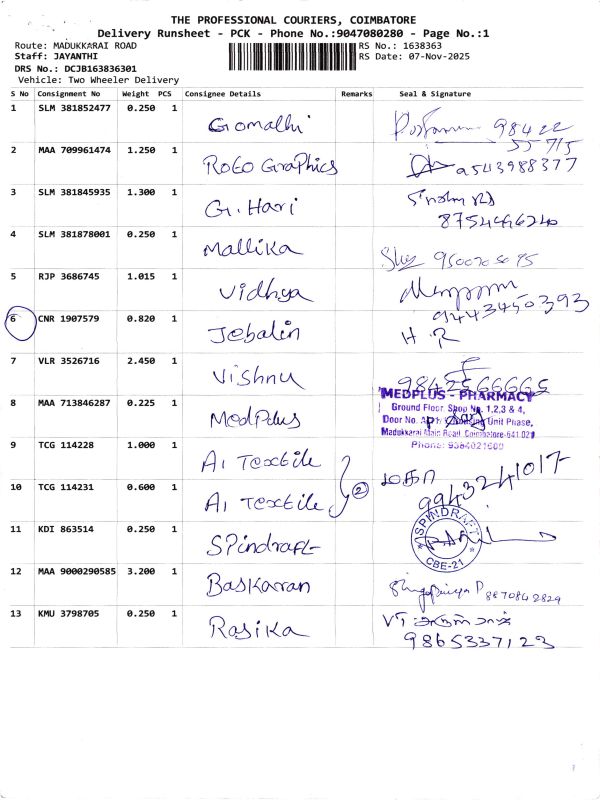 THE PROFESSIONAL COURIERS, COIMBATORE
Delivery Runsheet - PCK - Phone No.:9047080280 - Page No.:1
Route: MADUKKARAI ROAD
RS No.: 1638363
Staff: JAYANTHI
RS Date: 07-Nov-2025
DRS No.: DCJB163836301
Vehicle: Two Wheeler Delivery
S No Consignment No Weight PCS Consignee Details Remarks Seal & Signature
1 SLM 381852477 0.250 1 Gomathi 98422
55715
2 MAA 709961474 1.250 1 RoTo GraPhics 9543988377
3 SLM 381845935 1.300 1 G. Hari
8754466240
4 SLM 381878001 0.250 1 Mallika
5 RJP 3686745 1.015 1 Vidhya
9443450393
6 CNR 1907579 0.820 1 Jebalin H. R
7 VLR 3526716 2.450 1 Vishnu
9842566665
8 MAA 713846287 0.225 1 MedPlus
MEDPLUS - PHARMACY
Ground Floor, Shop No. 1,2,3 & 4,
Door No. Housing Unit Phase,
Madukkarai Main Road, Coimbatore-641 021
Phone: 9384021600
9 TCG 114228 1.000 1 A1 Textile
10 TCG 114231 0.600 1 A1 Textile 2 மகா
9943241017
11 KDI 863514 0.250 1 SPindraft
SPINDRAFT
CBE-21
12 MAA 9000290585 3.200 1 Baskaran
8870842829
13 KMU 3798705 0.250 1 Rasika
9865337123